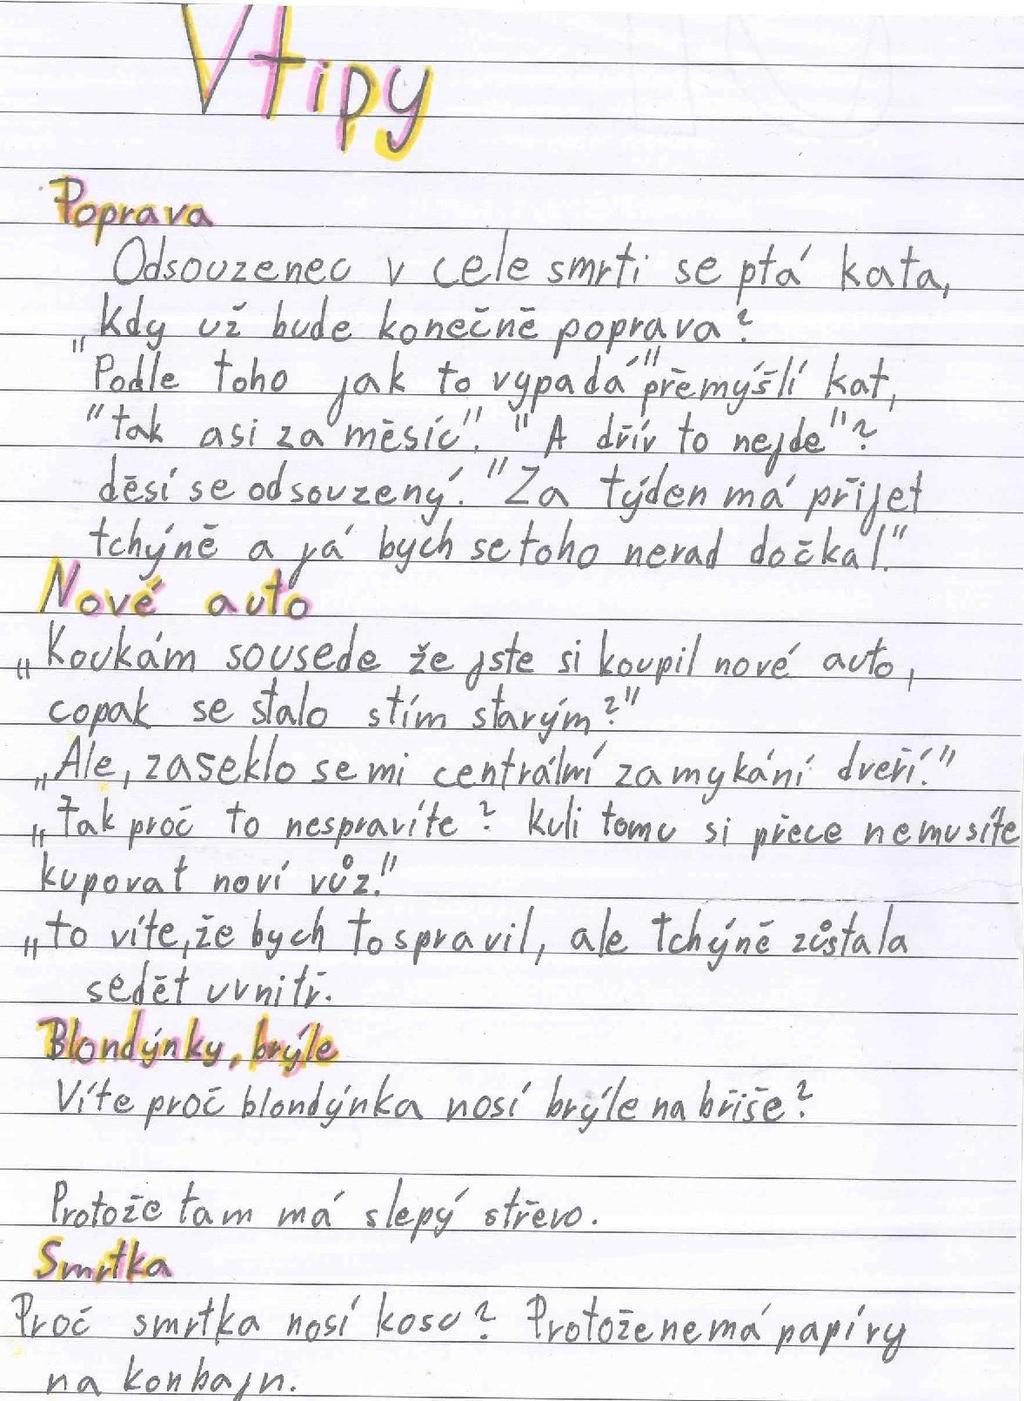 Vtipy
Poprava
Odsouzenec v cele smrti se ptá kata,
„Kdy už bude konečně poprava?
"Podle toho jak to vypadá" přemýšlí kat,
"tak asi za měsíc". "A dřív to nejde"?
děsí se odsouzený. "Za týden má přijet
tchýně a já bych se toho nerad dočkal."
Nové auto
„Koukám sousede že jste si koupil nové auto,
copak se stalo stím starým?"
„Ale, zaseklo se mi centrální zamykání dveří."
„Tak proč to nespravíte? kuli tomu si přece nemusíte
kupovat noví vůz."
„to víte, že bych to spravil, ale tchýně zůstala
sedět uvnitř.
Blondýnky, brýle
Víte proč blondýnka nosí brýle na břiše?
Protože tam má slepý střevo.
Smrtka
Proč smrtka nosí kosu? Protože nemá papíry
na konbajn.